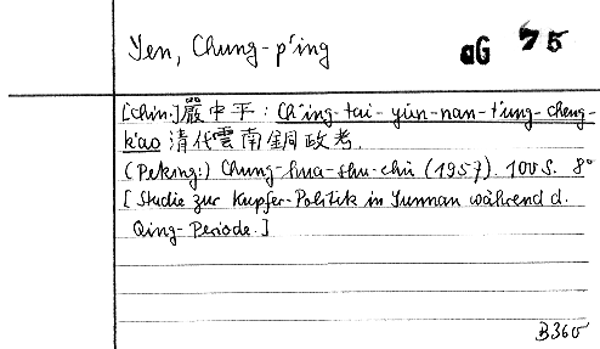 Yen, Chung-p'ing
aG 75
[Chin.] 嚴中平: Ch'ing-tai-yün-nan-t'ung-cheng-
k'ao 清代雲南銅政考.
(Peking:) Chung-hua-shu-chü (1957). 100 S. 8°
[Studie zur Kupfer-Politik in Yunnan während d.
Qing-Periode.]
B360